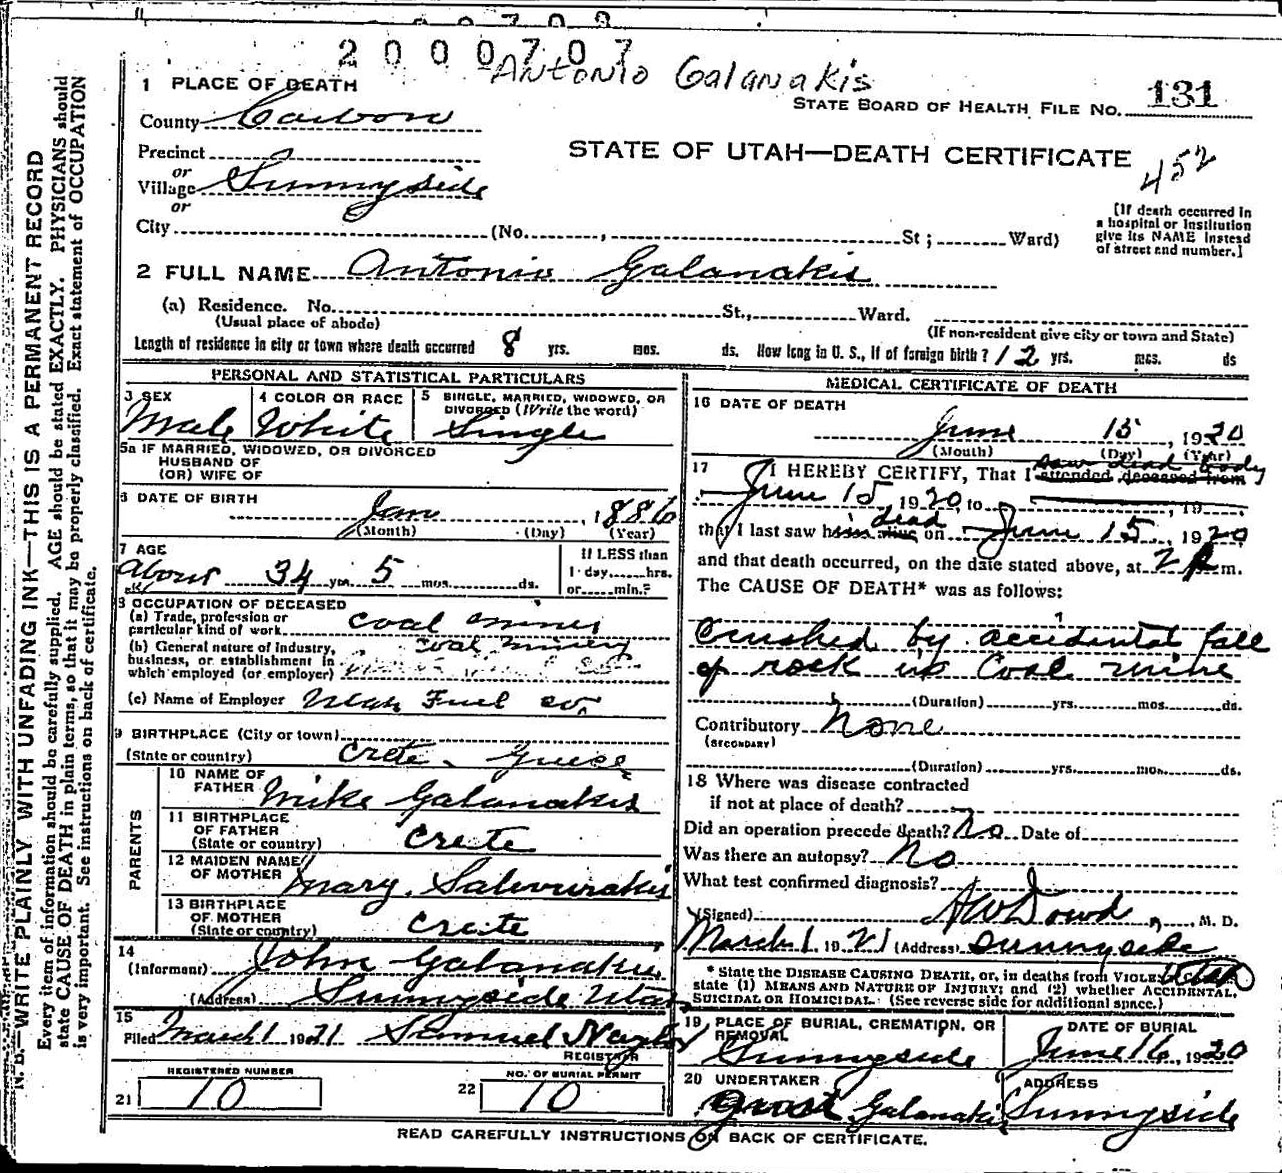 2000707
Antonio Galanakis
1 PLACE OF DEATH
STATE BOARD OF HEALTH FILE NO. 131
County Carbon
STATE OF UTAH—DEATH CERTIFICATE
452
Precinct
or
Village Sunnyside
or
City (No. , St; Ward)
[If death occurred in
a hospital or Institution
give its NAME instead
of street and number.]
2 FULL NAME Antonio Galanakis
(a) Residence. No. St., Ward.
(Usual place of abode) (If non-resident give city or town and State)
Length of residence in city or town where death occurred 8 yrs. mos. ds. How long in U. S., if of foreign birth? 12 yrs. mos. ds
PERSONAL AND STATISTICAL PARTICULARS
3 SEX
Male
4 COLOR OR RACE
White
5 SINGLE, MARRIED, WIDOWED, OR
DIVORCED (Write the word)
Single
5a IF MARRIED, WIDOWED, OR DIVORCED
HUSBAND OF
(OR) WIFE OF
6 DATE OF BIRTH
Jan , 1886
(Month) (Day) (Year)
7 AGE
About 34 yrs 5 mos. ds.
If LESS than
1 day, hrs.
or min.?
8 OCCUPATION OF DECEASED
(a) Trade, profession or
particular kind of work Coal miner
(b) General nature of Industry,
business, or establishment in
which employed (or employer)
Coal mining
(c) Name of Employer Utah Fuel Co.
9 BIRTHPLACE (City or town)
(State or country) Crete - Greece
PARENTS
10 NAME OF
FATHER Mike Galanakis
11 BIRTHPLACE
OF FATHER
(State or country) Crete
12 MAIDEN NAME
OF MOTHER Mary
13 BIRTHPLACE
OF MOTHER
(State or country) Crete
14
(Informant) John Galanakis
(Address) Sunnyside Utah
15
Filed March 1 1921 Samuel Naylor
REGISTRAR
21 REGISTERED NUMBER
10
22 NO. OF BURIAL PERMIT
10
MEDICAL CERTIFICATE OF DEATH
16 DATE OF DEATH
June 15, 1920
(Month) (Day) (Year)
17 I HEREBY CERTIFY, That I saw dead body
attended deceased from
June 15 1920, to , 19
that I last saw him alive dead on June 15, 1920
and that death occurred, on the date stated above, at 2 P m.
The CAUSE OF DEATH* was as follows:
Crushed by accidental fall
of rock in Coal mine
(Duration) yrs. mos. ds.
Contributory None
(SECONDARY)
(Duration) yrs. mos. ds.
18 Where was disease contracted
if not at place of death?
Did an operation precede death? No Date of
Was there an autopsy? No
What test confirmed diagnosis?
(Signed) A W Dowd, M. D.
March 1 1921 (Address) Sunnyside
Utah
* State the DISEASE CAUSING DEATH, or, in deaths from VIOLENT CAUSES,
state (1) MEANS AND NATURE OF INJURY; and (2) whether ACCIDENTAL,
SUICIDAL OR HOMICIDAL. (See reverse side for additional space.)
19 PLACE OF BURIAL, CREMATION, OR
REMOVAL
Sunnyside
DATE OF BURIAL
June 16, 1920
20 UNDERTAKER
Galanakis
ADDRESS
Sunnyside
READ CAREFULLY INSTRUCTIONS ON BACK OF CERTIFICATE.
N. B.—WRITE PLAINLY WITH UNFADING INK—THIS IS A PERMANENT RECORD
Every item of information should be carefully supplied. AGE should be stated EXACTLY. PHYSICIANS should
state CAUSE OF DEATH in plain terms, so that it may be properly classified. Exact statement of OCCUPATION
is very important. See instructions on back of certificate.